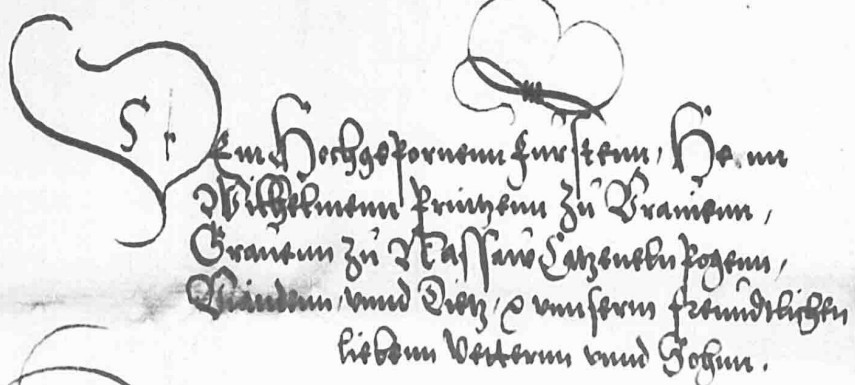 Dem Hochgebornnenn Furstenn, Herrnn
Wilhelmenn Printzenn Zu Vranienn,
Grauenn Zu Nassaw Catzenelnbogenn,
Viandenn, vnnd Dietz, &c vnnserm freundtlichen
liebenn Vetternn vnnd Sohnn.